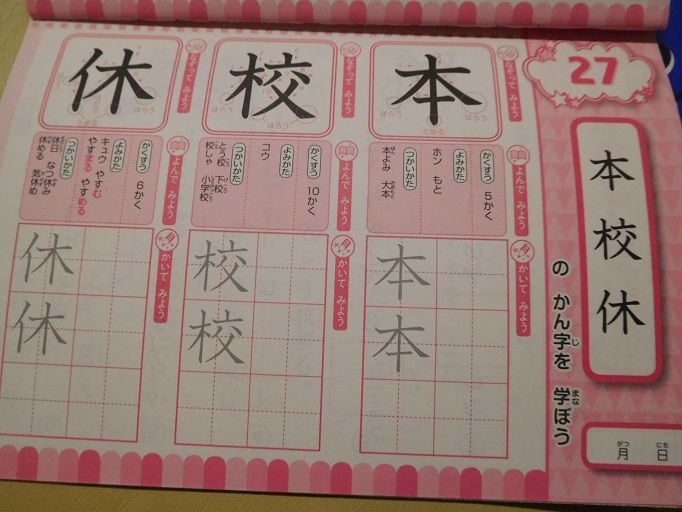 27
本校休
の かん字を 学ぼう
じ
まな
月 日
がつ
にち
なぞって みよう
本
はらう
とめる
よんで みよう
かくすう
5かく
よみかた
ホン もと
つかいかた
本よみ 大本
かいて みよう
本
本
なぞって みよう
校
はらう
はらう
よんで みよう
かくすう
10かく
よみかた
コウ
つかいかた
とう校 下校
校しゃ 小学校
かいて みよう
校
校
なぞって みよう
休
はらう
とめる
よんで みよう
かくすう
6かく
よみかた
キュウ やすむ
やすまる やすめる
つかいかた
休日 なつ休み
休める 気休め
かいて みよう
休
休